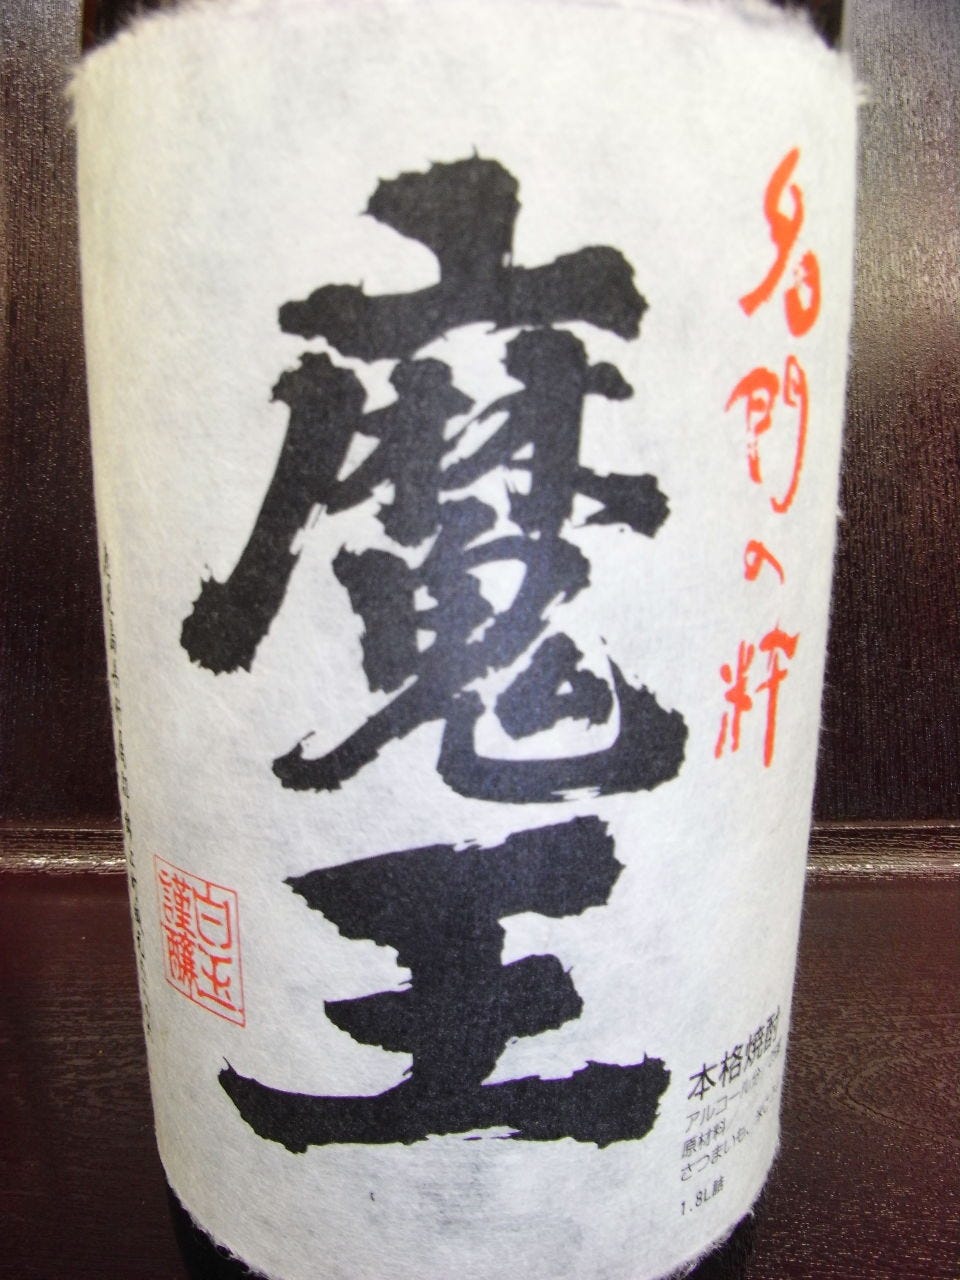 名門の粋
魔王
謹醸
本格焼酎
アルコール分
原材料
さつまいも、米
1.8L詰